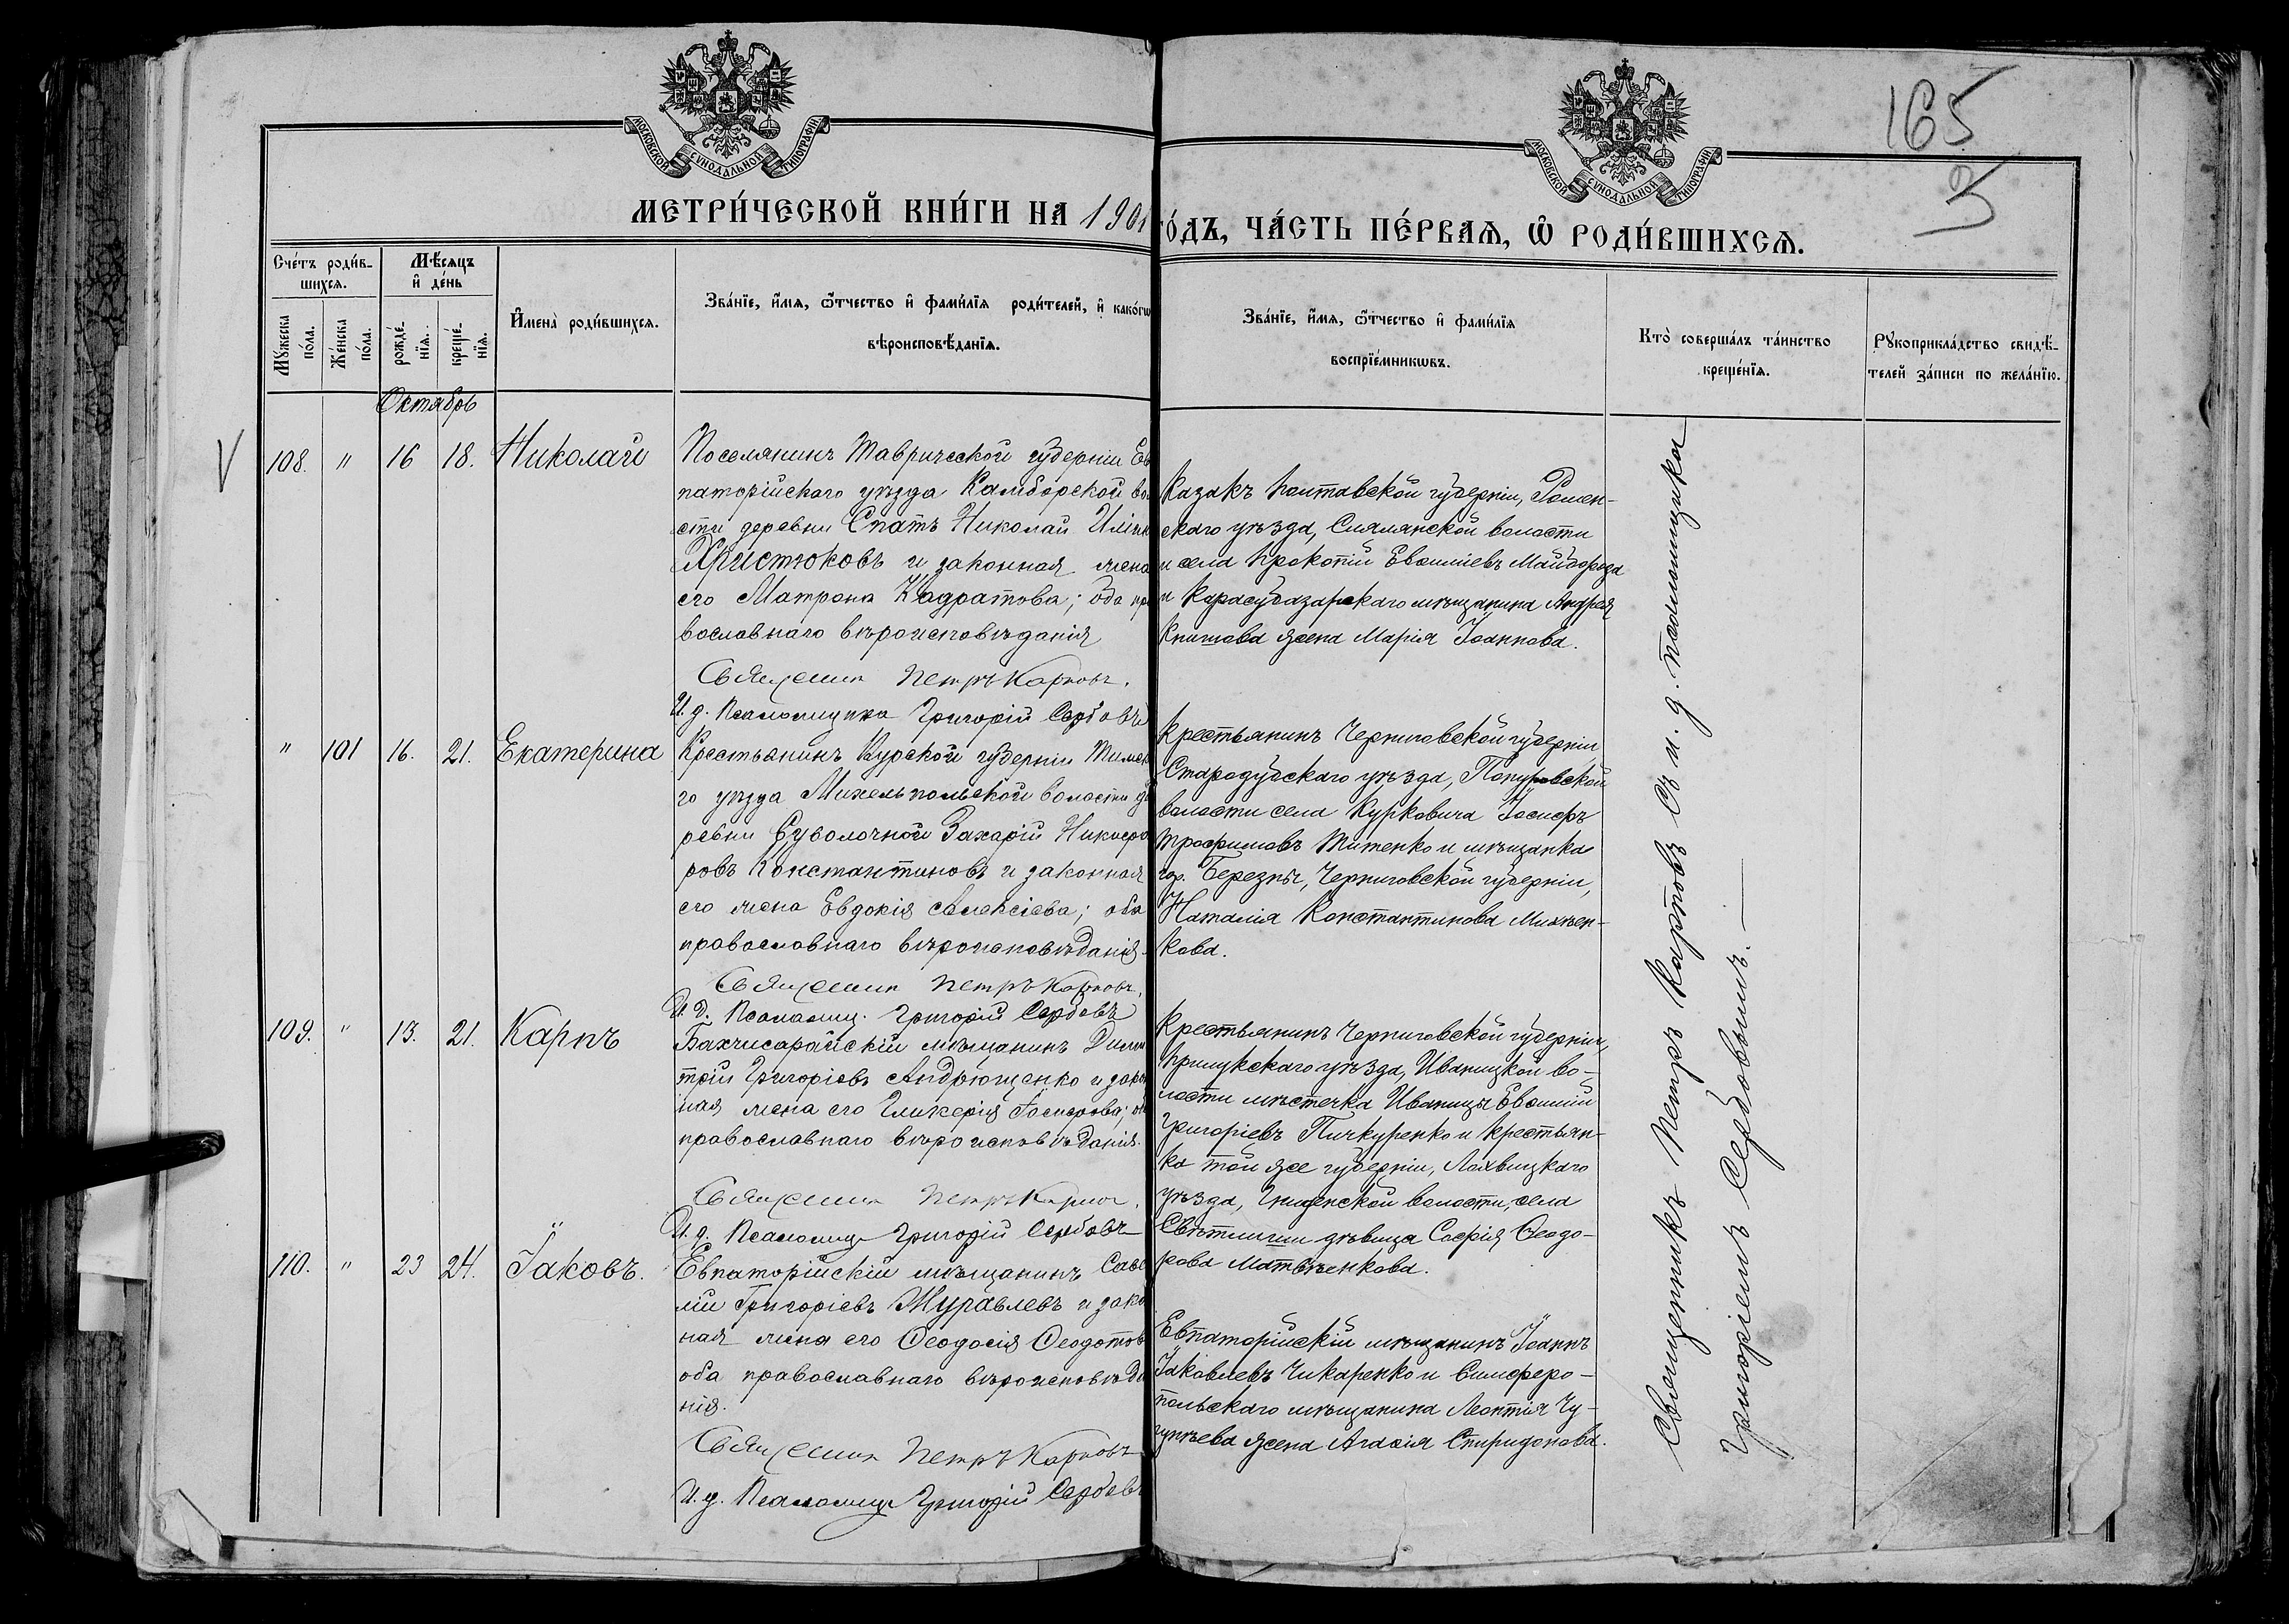 МОСКОВСКОЙ СѴНОДАЛЬНОЙ ТИПОГРАФІИ
МОСКОВСКОЙ СѴНОДАЛЬНОЙ ТИПОГРАФІИ
165
3
МЕТРИ́ЧЕСКОЙ КНИ́ГИ НА 1901
ГО́ДЪ, ЧА́СТЬ ПЕ́РВАѦ, Ѡ҆ РОДИ́ВШИХСѦ.
Сче́тъ роди́в-
шихсѧ.
Мꙋжеска
по́ла.
Же́нска
по́ла.
Мѣ́сѧцъ
и҆ де́нь
рожде́-
нїѧ.
креще́-
нїѧ.
И҆мена̀ роди́вшихсѧ.
Зва́нїе, и҆́мѧ, ѻ҆́тчество и҆ фами́лїѧ роди́телей, и҆ како́гѡ
вѣроисповѣ́данїѧ.
Зва́нїе, и҆́мѧ, ѻ҆́тчество и҆ фами́лїѧ
воспрїе́мникѡвъ.
Кто̀ соверша́лъ та́инство
креще́нїѧ.
Рꙋкоприкла́дство свидѣ́-
телей за́писи по жела́нїю.
Октябрь
V 108. " 16 18. Николай
Поселянинъ Таврической губерніи Ев
паторійскаго уѣзда Камборской во
сти деревни Спатъ Николай Иліинъ
Христюковъ и законная жена
его Матрона Кадратова; оба пра
вославнаго вѣроисповѣданія
Священник Петръ Карповъ.
И. д. Псаломщика Григорій Сербовъ
Казакъ Полтавской губерніи, Ромен-
скаго уѣзда, Смѣлянской волости
и села Прокопій Евѳиміевъ Майборода
и Карасубазарскаго мѣщанина Андрея
Книшова жена Марія Іоаннова.
" 101 16. 21. Екатерина
Крестьянинъ Курской губерніи Тимск
го уѣзда Михельпольской волости де
ревни Суволочной Захарій Никифо
ровъ Константиновъ и законная
его жена Евдокія Алексіева; оба
православнаго вѣроисповѣданія.
Священник Петръ Карповъ.
И. д. Псаломщ. Григорій Сербовъ
Крестьянинъ Черниговской губерніи
Стародубскаго уѣзда, Понуровской
волости села Курковича Іосифъ
Трофимовъ Титенко и мѣщанка
гор. Березны, Черниговской губерніи,
Наталія Константинова Михѣен-
кова.
109. " 13. 21. Карпъ
Бахчисарайскій мѣщанинъ Дими
трій Григоріевъ Андрющенко и закон
ная жена его Гликерія Іосифова; об
православнаго вѣроисповѣданія.
Священник Петръ Карпов.
И. д. Псаломщ Григорій Сербовъ
Крестьянинъ Черниговской губерніи,
Прилукскаго уѣзда, Иваницкой во-
лости мѣстечка Иваницы Евѳимій
Григоріевъ Пичкуренко и крестьян-
ка той же губерніи, Лохвицкаго
уѣзда, волости, села
дѣвица Софія Ѳеодо-
рова Матвѣенкова.
110. " 23 24. Іаковъ.
Евпаторійскій мѣщанинъ Сав
лій Григоріевъ Журавлевъ и зако
ная жена его Ѳеодосія Ѳеодотов
оба православнаго вѣроисповѣда
нія.
Священник Петръ Карповъ
И. д. Псаломщ Григорій Сербовъ
Евпаторійскій мѣщанинъ Іоаннъ
Іаковлевъ Чикаренко и Симферо-
польскаго мѣщанина Леонтія Чу-
гунѣева жена Агафія Спиридонова.
Священникъ Петръ Карповъ съ и. д. псаломщика
Григоріемъ Сербовымъ.